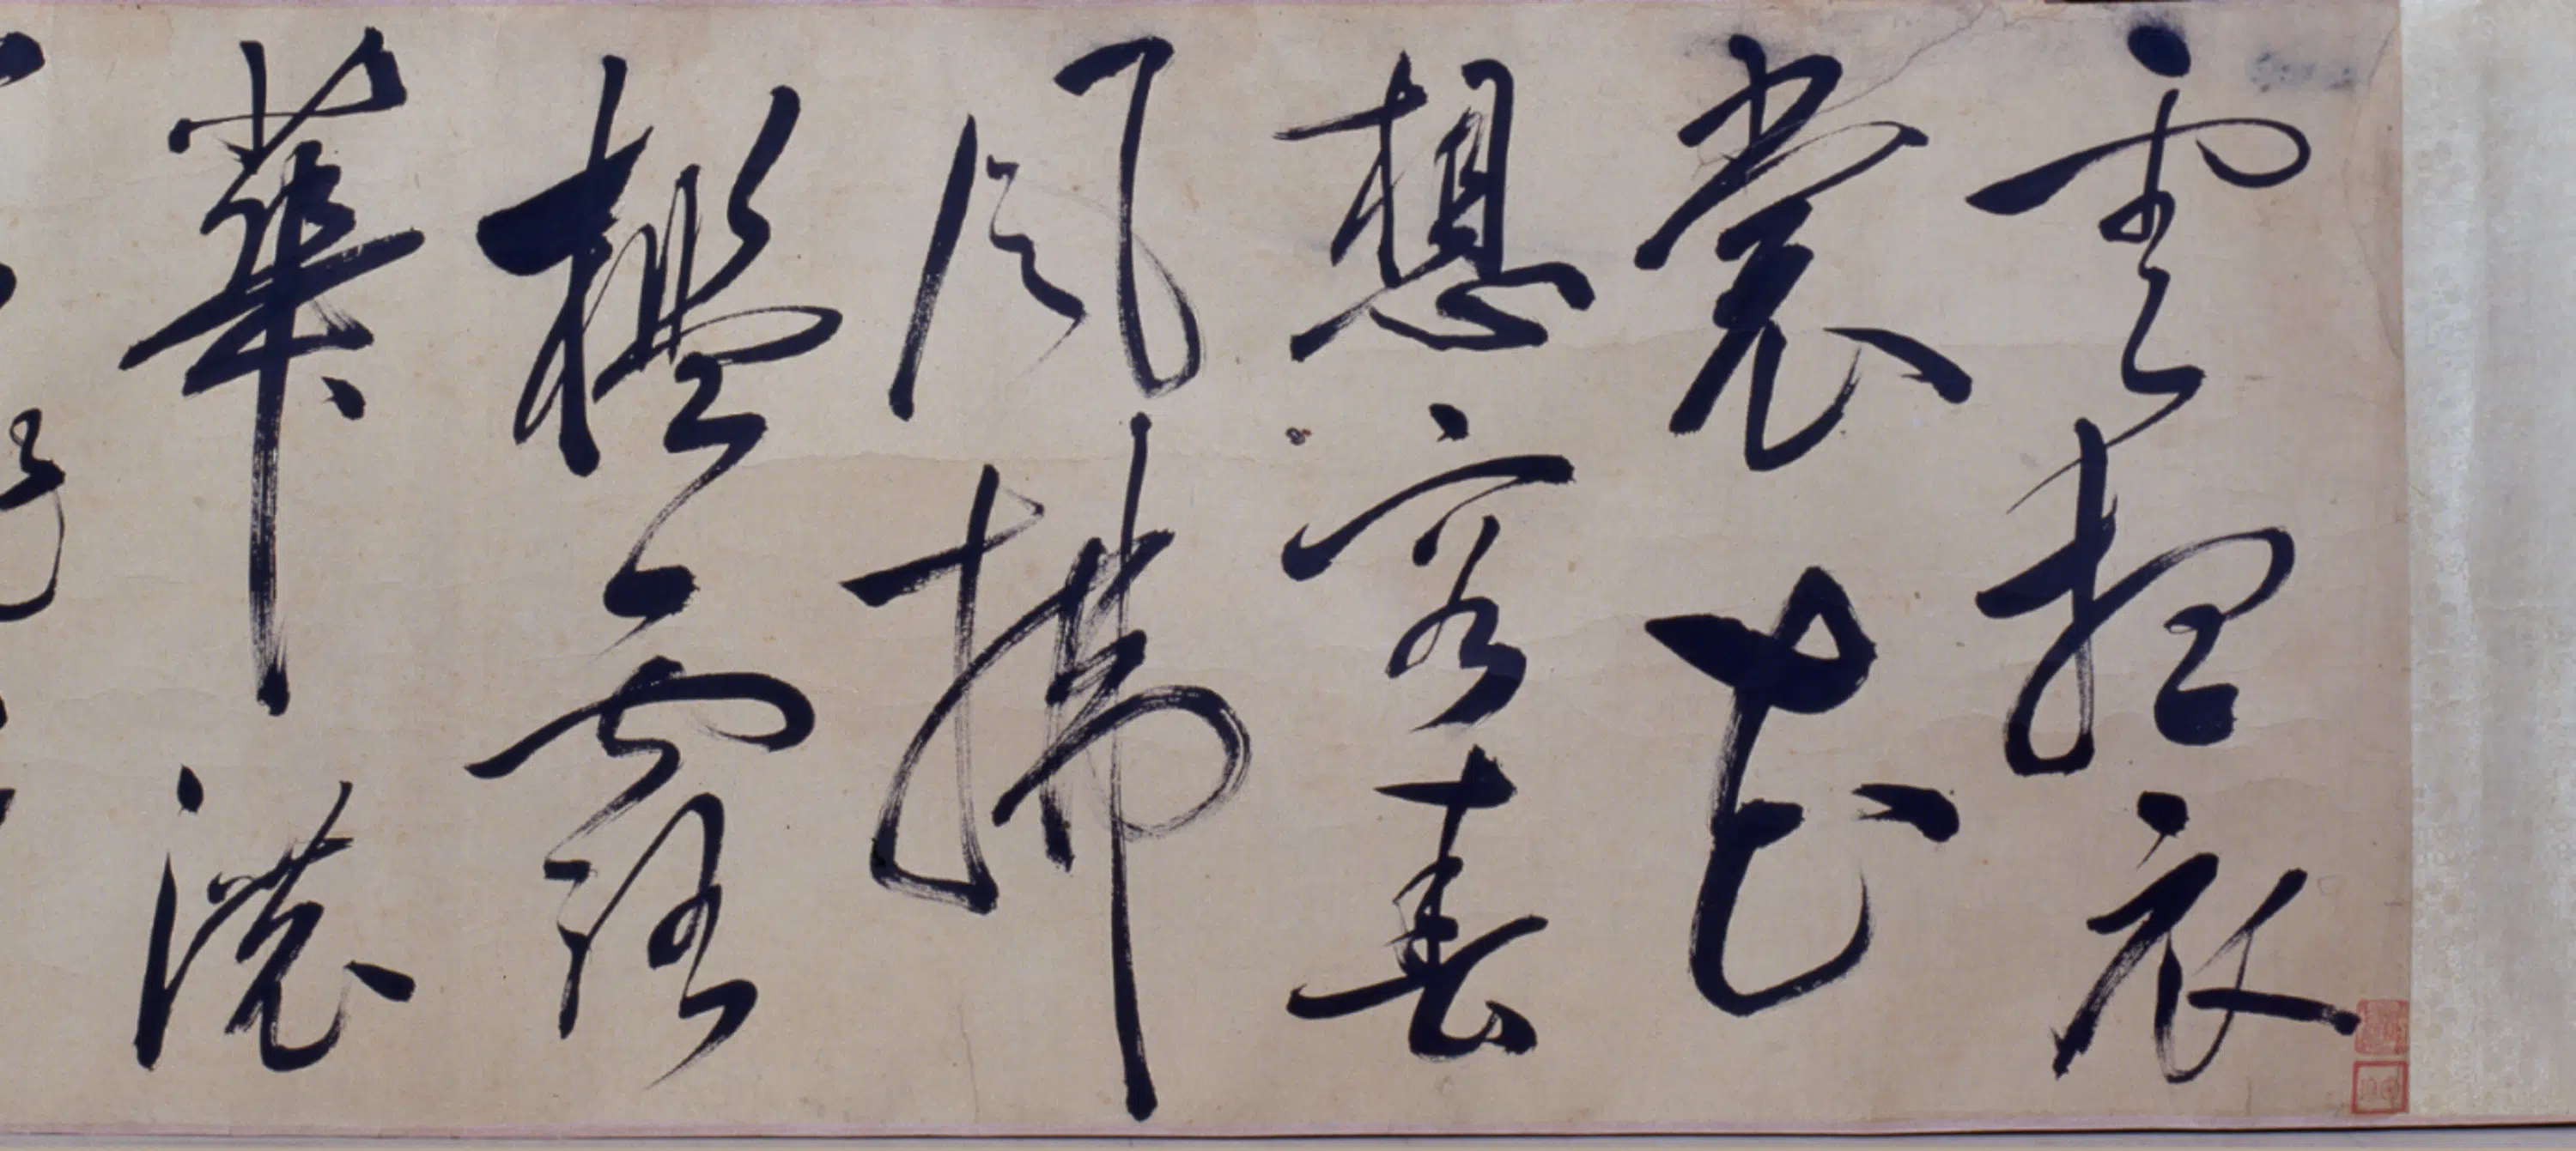 雲想衣
裳花
想容春
風拂
檻露
華濃